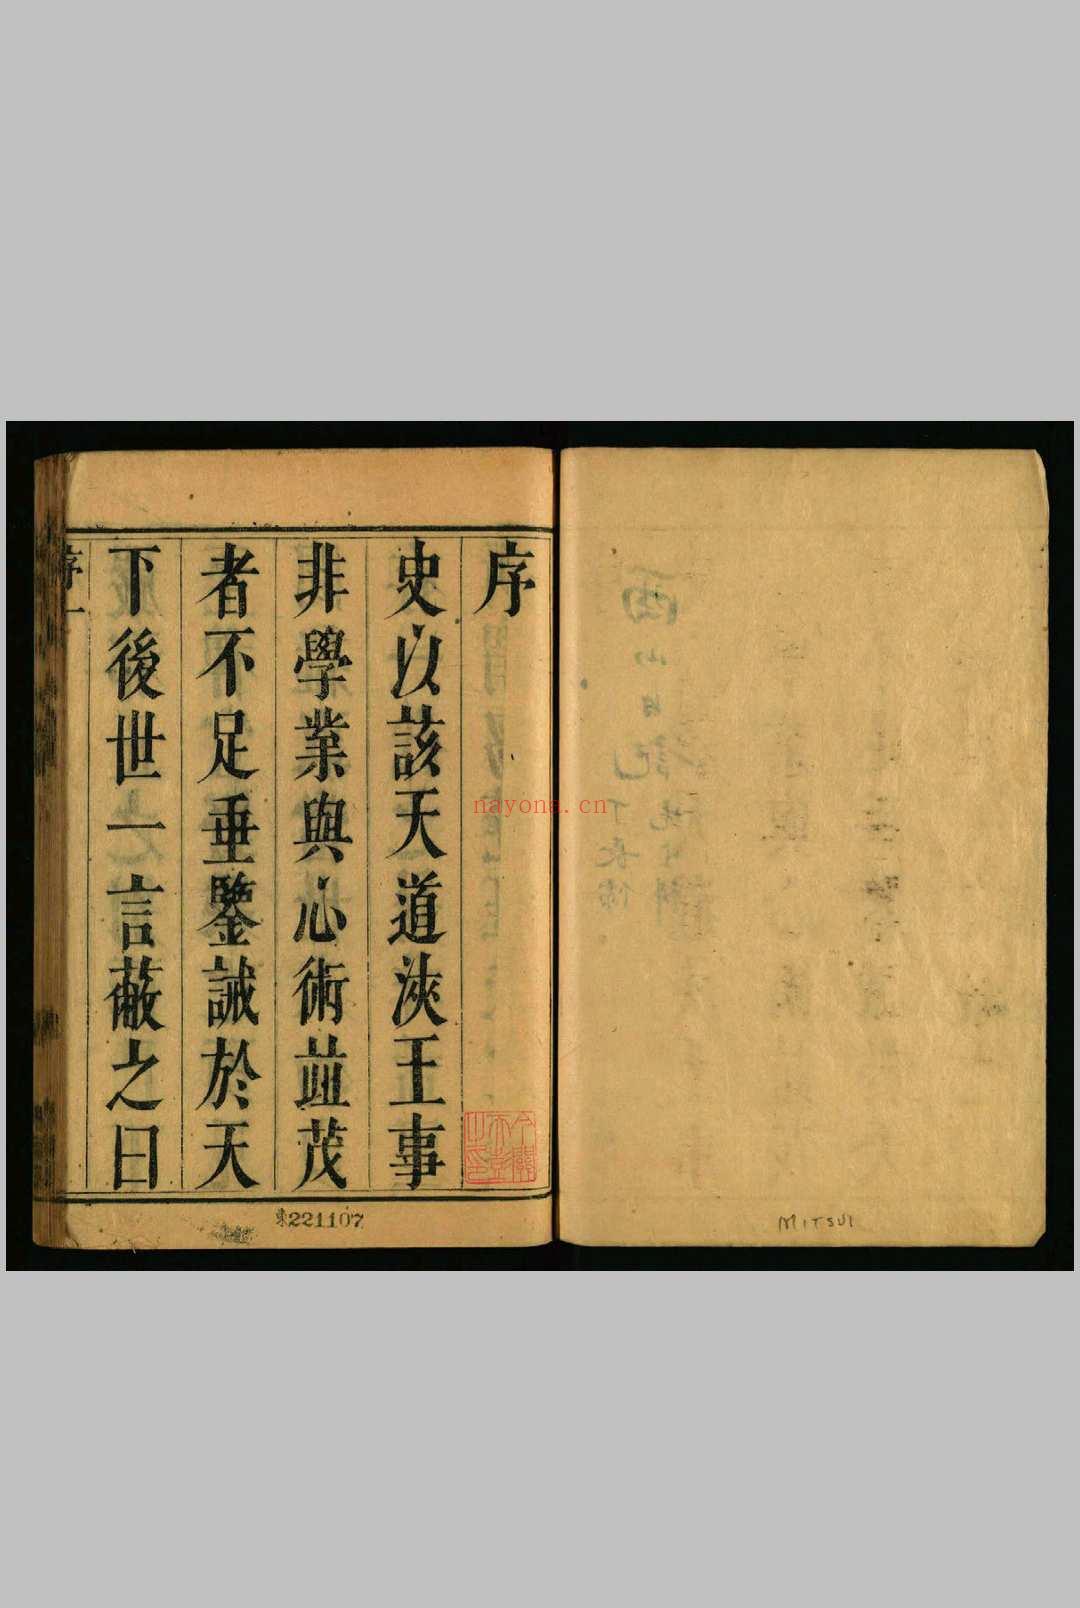 序
史以該天道浹王事
非學業與心術並茂
者不足垂鑒誡於天
下後世一言蔽之曰
序一
東221107
MITSUI
nayona.cn